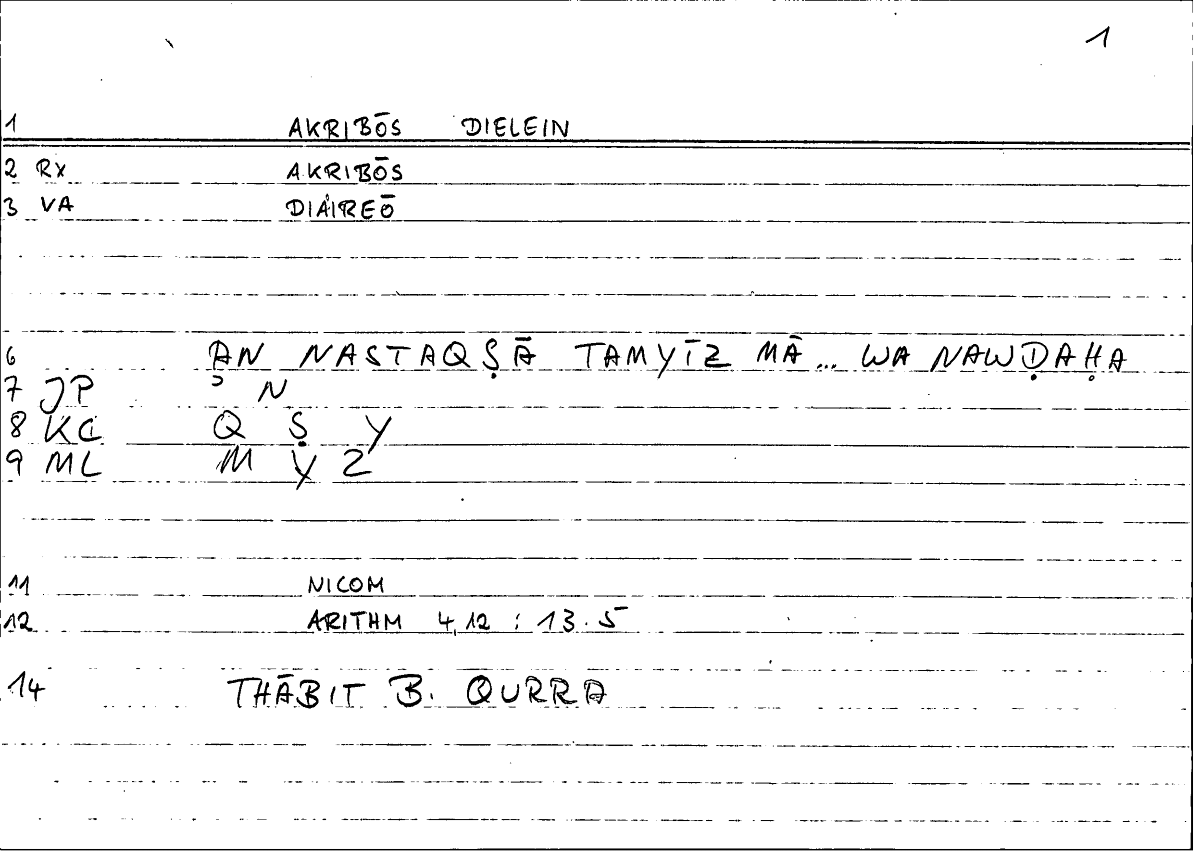 1
1 AKRIBŌS DIELEIN
2 RX AKRIBŌS
3 VA DIAIREŌ
6 AN NASTAQṢĀ TAMYĪZ MĀ... WA NAWḌAḤA
7 JP ʾ N
8 KC Q Ṣ Y
9 ML M Y Z
11 NICOM
12 ARITHM 4,12 : 13.5
14 THĀBIT B. QURRA